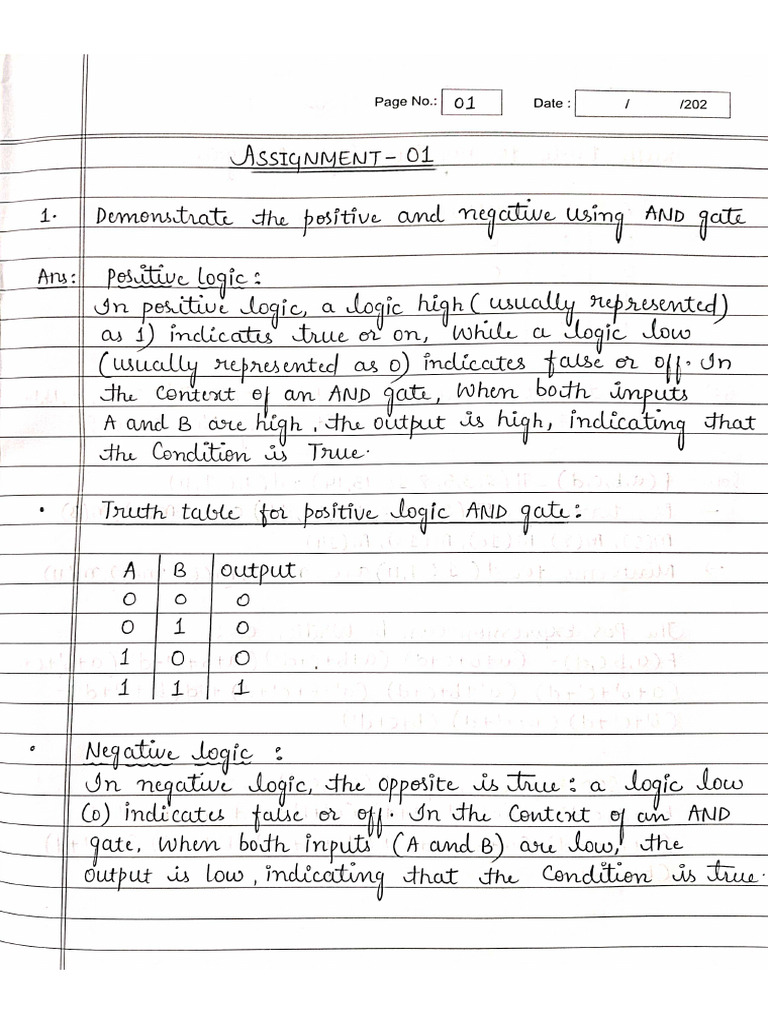 Page No.: 01 Date : / /202
ASSIGNMENT - 01
1. Demonstrate the positive and negative using AND gate
Ans: Positive Logic :
In positive logic, a logic high ( usually represented)
as 1) indicates true or on, while a logic low
(usually represented as 0) indicates false or off. In
the context of an AND gate, when both inputs
A and B are high, the output is high, indicating that
the Condition is True.
• Truth table for positive logic AND gate :
A B output
0 0 0
0 1 0
1 0 0
1 1 1
• Negative logic :
In negative logic, the opposite is true : a logic low
(0) indicates false or off. In the Context of an AND
gate, when both inputs (A and B) are low, the
output is low, indicating that the condition is true.